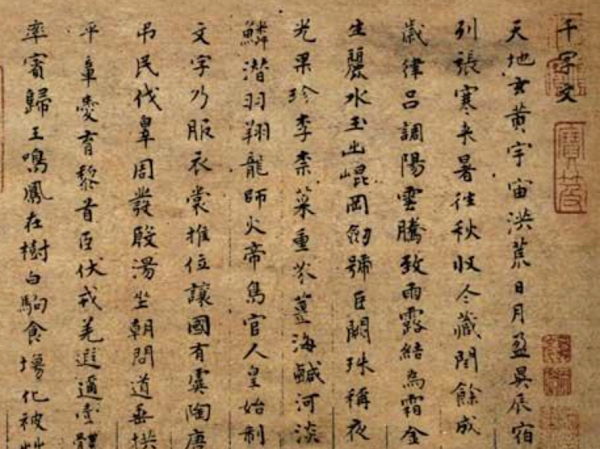 千字文
天地玄黃宇宙洪荒日月盈昃辰宿
列張寒来暑往秋收冬藏閏餘成
歲律呂調陽雲騰致雨露結為霜金
生麗水玉出崐岡劒號巨闕珠稱夜
光果珍李柰菜重芥薑海鹹河淡
鱗潛羽翔龍師火帝鳥官人皇始制
文字乃服衣裳推位讓國有虞陶唐
吊民伐辠周發殷湯坐朝問道垂拱
平章愛育黎首臣伏戎羌遐邇壹體
率賓歸王鳴鳳在樹白駒食場化被
寶笈